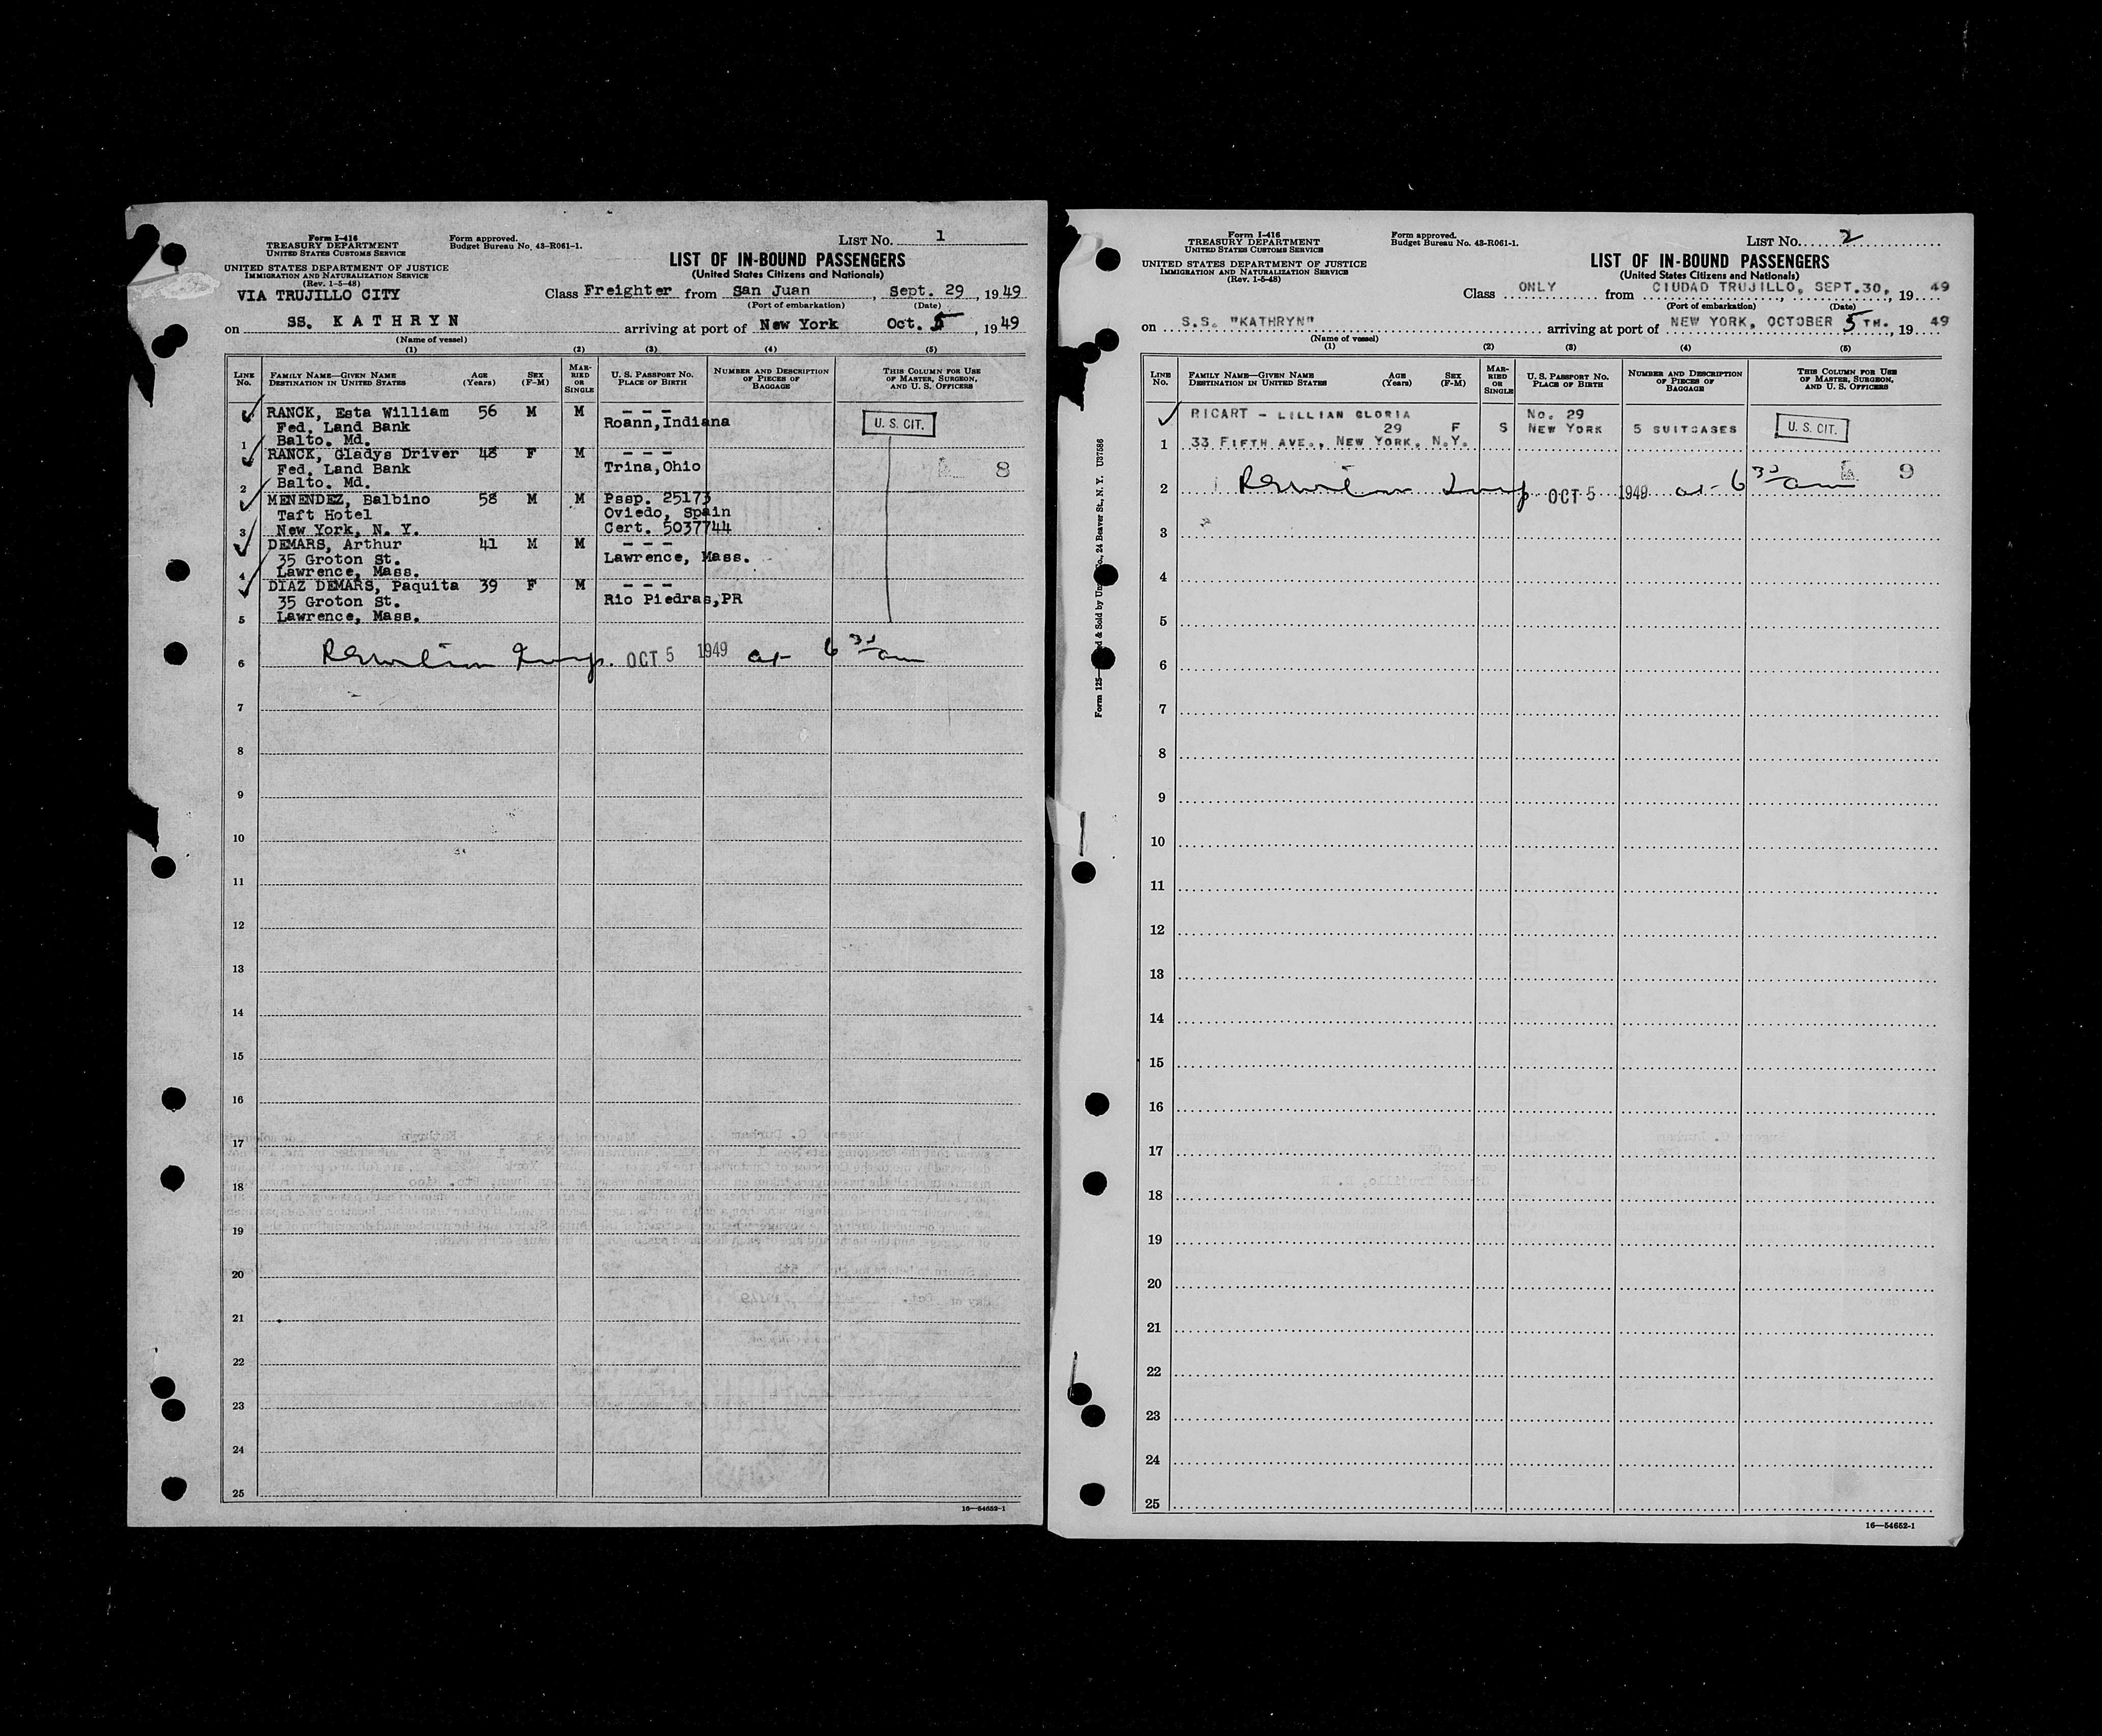 Form I-416
TREASURY DEPARTMENT
UNITED STATES CUSTOMS SERVICE
UNITED STATES DEPARTMENT OF JUSTICE
IMMIGRATION AND NATURALIZATION SERVICE
(Rev. 1-5-48)
VIA TRUJILLO CITY
Form approved.
Budget Bureau No. 43-R061-1.
LIST No. 1
LIST OF IN-BOUND PASSENGERS
(United States Citizens and Nationals)
Class Freighter from San Juan, Sept. 29, 1949
(Port of embarkation) (Date)
on SS. KATHRYN arriving at port of New York Oct. 5, 1949
(Name of vessel)
(1) (2) (3) (4) (5)
LINE No. FAMILY NAME—GIVEN NAME DESTINATION IN UNITED STATES AGE (Years) SEX (F-M) MARRIED OR SINGLE U. S. PASSPORT NO. PLACE OF BIRTH NUMBER AND DESCRIPTION OF PIECES OF BAGGAGE THIS COLUMN FOR USE OF MASTER, SURGEON, AND U. S. OFFICERS
RANCK, Esta William 56 M M - - -
Fed. Land Bank Roann, Indiana U. S. CIT.
1 Balto. Md.
RANCK, Gladys Driver 48 F M - - -
Fed. Land Bank Trina, Ohio 8
2 Balto. Md.
MENENDEZ, Balbino 58 M M Pssp. 25173
Taft Hotel Oviedo, Spain
3 New York, N. Y. Cert. 5037744
DEMARS, Arthur 41 M M - - -
35 Groton St. Lawrence, Mass.
4 Lawrence, Mass.
DIAZ DEMARS, Paquita 39 F M - - -
35 Groton St. Rio Piedras, PR
5 Lawrence, Mass.
6 OCT 5 1949 at 6 30 am
7
8
9
10
11
12
13
14
15
16
17
18
19
20
21
22
23
24
25
16—54652-1
Form I-416
TREASURY DEPARTMENT
UNITED STATES CUSTOMS SERVICE
UNITED STATES DEPARTMENT OF JUSTICE
IMMIGRATION AND NATURALIZATION SERVICE
(Rev. 1-5-48)
Form approved.
Budget Bureau No. 43-R061-1.
LIST No. 2
LIST OF IN-BOUND PASSENGERS
(United States Citizens and Nationals)
Class ONLY from CIUDAD TRUJILLO, SEPT.30, 1949
(Port of embarkation) (Date)
on S.S. "KATHRYN" arriving at port of NEW YORK, OCTOBER 5TH., 1949
(Name of vessel)
(1) (2) (3) (4) (5)
LINE No. FAMILY NAME—GIVEN NAME DESTINATION IN UNITED STATES AGE (Years) SEX (F-M) MARRIED OR SINGLE U. S. PASSPORT NO. PLACE OF BIRTH NUMBER AND DESCRIPTION OF PIECES OF BAGGAGE THIS COLUMN FOR USE OF MASTER, SURGEON, AND U. S. OFFICERS
RICART - LILLIAN GLORIA No. 29
29 F S NEW YORK 5 SUITCASES U. S. CIT.
1 33 FIFTH AVE., NEW YORK, N.Y.
2 OCT 5 1949 at 6 30 am 9
3
4
5
6
7
8
9
10
11
12
13
14
15
16
17
18
19
20
21
22
23
24
25
16—54652-1
Sold by Co., 24 Beaver St., N. Y. U37586
Form 125